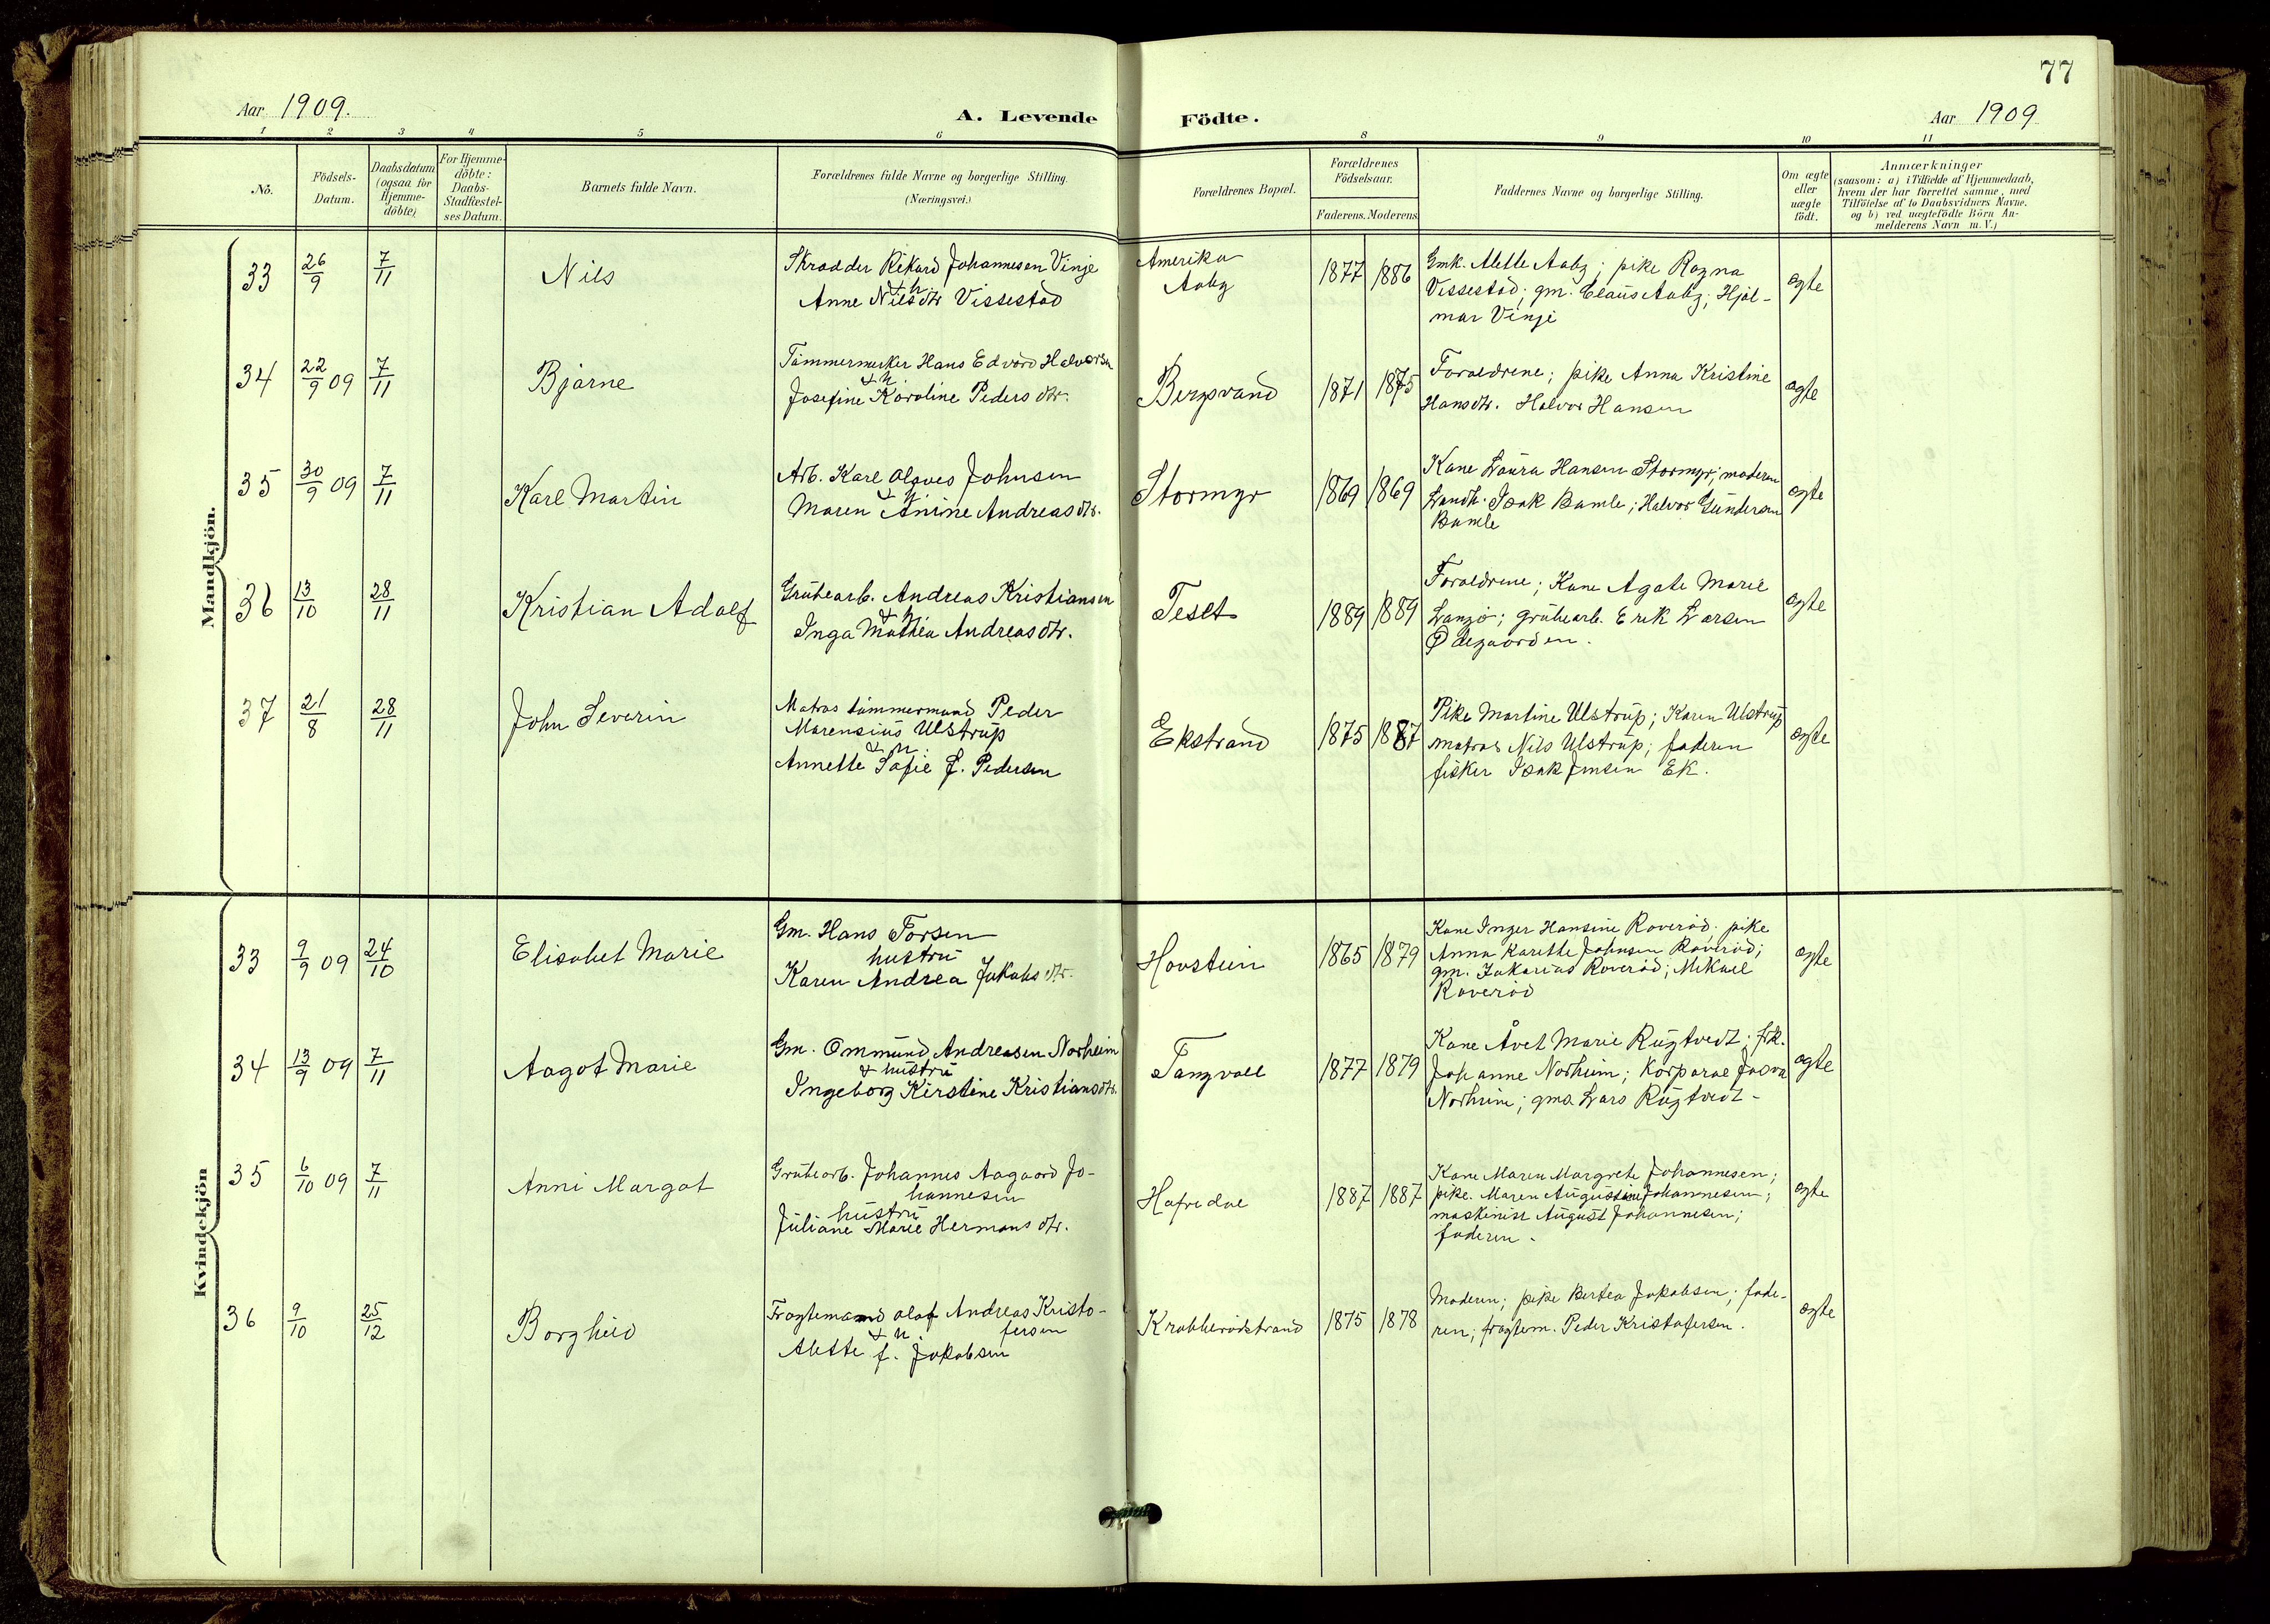 77
Aar 1909.
A. Levende Födte.
Aar 1909
1 2 3 4 5 6 8 9 10 11
No.
Födsels-
Datum.
Daabsdatum
(ogsaa for
Hjemme-
döbte)
For Hjemme-
döbte:
Daabs-
Stadfæstel-
ses Datum.
Barnets fulde Navn.
Forældrenes fulde Navne og borgerlige Stilling.
(Næringsvei.)
Forældrenes Bopæl.
Forældrenes
Födselsaar.
Faderens. Moderens
Faddernes Navne og borgerlige Stilling.
Om ægte
eller
uægte
födt.
Anmærkninger
(saasom: a) i Tilfælde af Hjemmedaab,
hvem der har forrettet samme, med
Tilföielse af to Daabsvidners Navne.
og b) ved uægtefödte Börn An-
melderens Navn m. V.)
Mandkjön.
33 26/9 7/11 Nils
Skrædder Rikard Johannesen Vinje
& h.
Anne Nilsdtr Vissestad
Amerika
Aaby
1877 1886
Gmk. Alette Aaby; pike Ragna
Vissestad; gm. Claus Aaby; Hjal-
mar Vinje
ægte
34 22/9 09 7/11 Bjarne
Tømmermerker Hans Edvard Halvorsen
& h
Josefine Karoline Pedersdtr.
Bergsvand
1871 1875
Forældrene; pike Anna Kristine
Hansdtr. Halvor Hansen
ægte
35 30/9 09 7/11 Karl Martin
Arb. Karl Olaves Johnsen
& h
Maren Anine Andreasdtr.
Stormyr
1869 1869
Kone Laura Hansen Stormyr; moderen
Landh. Isak Bamle; Halvor Gundersen
Bamle
ægte
36 13/10 28/11 Kristian Adolf
Grubearb. Andreas Kristiansen
& h
Inga Mathea Andreasdtr.
Teset
1889 1889
Forældrene; Kone Agate Marie
Langø; grubearb. Erik Larsen
Ødegaarden.
ægte
37 21/8 28/11 John Severin
Matros tømmermand Peder
Marensius Ulstrup
& h.
Annette Sofie f. Pedersen
Ekstrand
1875 1887
Pike Martine Ulstrup; Karen Ulstrup
matros Nils Ulstrup; faderen
fisker Isak Jensen Ek.
ægte
Kvindekjön
33 9/9 09 24/10 Elisabet Marie
Gm. Hans Torsen
hustru
Karen Andrea Jakobsdtr.
Hovstein
1865 1879
Kone Inger Hansine Roverød. pike
Anna Karethe Johnsen Roverød;
gm. Zakarias Roverød; Mikael
Roverød
ægte
34 13/9 09 7/11 Aagot Marie
Gm. Ommund Andreasen Norheim
& hustru
Ingeborg Kirstine Kristiansdtr.
Tangvall
1877 1879
Kone Åvet Marie Rugtvedt; frk.
Johanne Norheim; Korporal
Norheim; gma Lars Rugtvedt-
ægte
35 6/10 09 7/11 Anni Margot
Grubearb. Johannes Aagaard Jo-
hannesen
hustru
Juliane Marie Hermansdtr.
Hafredal
1887 1887
Kone Maren Margrete Johannesen;
pike. Maren Augustine Johannesen;
maskinist August Johannesen;
faderen.
ægte
36 9/10 25/12 Borghild
Fragtemand Olaf Andreas Kristo-
& h fersen
Alette f. Jakobsen
Krabberødstrand
1875 1878
Moderen; pike Bertea Jakobsen; fade-
ren; fragtem. Peder Kristofersen.
ægte